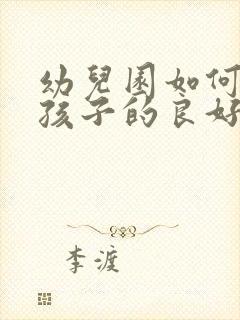 幼兒園如何
孩子的良好
李渡